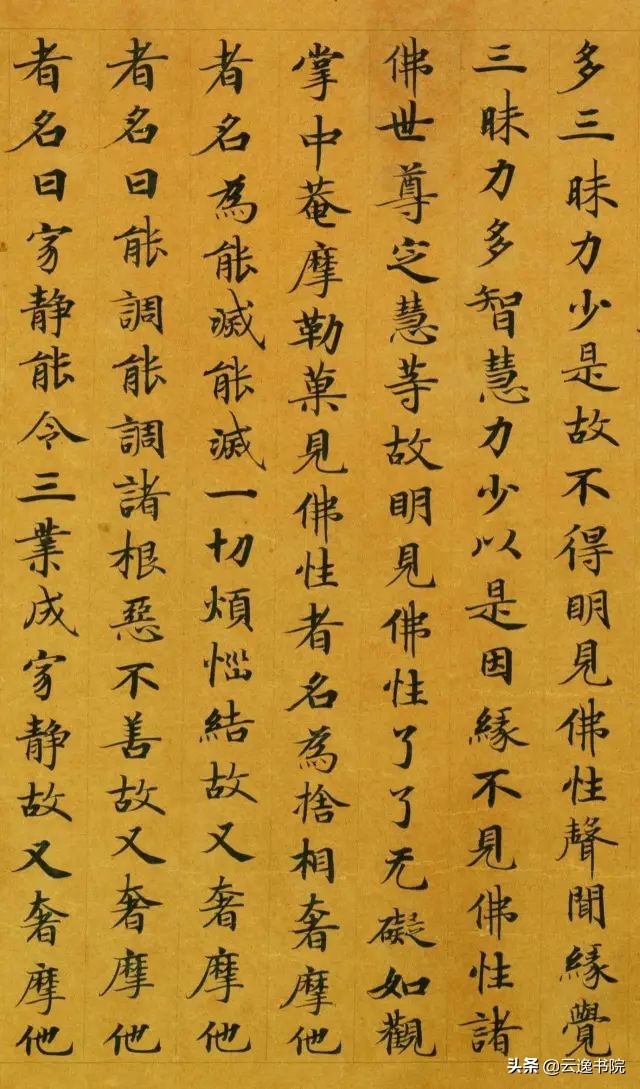 多三昧力少是故不得明見佛性聲聞緣覺
三昧力多智慧力少以是因緣不見佛性諸
佛世尊定慧等故明見佛性了了无礙如觀
掌中菴摩勒菓見佛性者名為捨相奢摩他
者名為能滅能滅一切煩惱結故又奢摩他
者名曰能調能調諸根惡不善故又奢摩他
者名曰寂静能令三業成寂静故又奢摩他
头条 @云逸书院